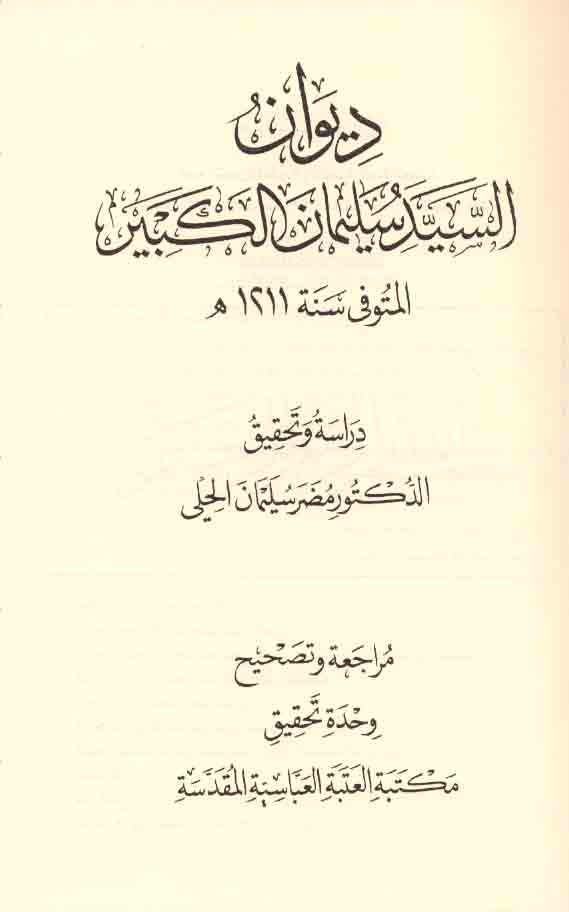 ديوان
السَّيِّد سُليمان الكَبِير
المتوفى سَنة ١٢١١ ه
دِرَاسَةُ وَتَحقِيقُ
الدُّكتُور مُضَر سُلَيْمَانَ الحِلِّي
مُراجَعة وتصَحيْح
وِحْدَةِ تَحقِيقِ
مَكتَبَةِ العَتَبَةِ العَبَّاسِيَّةِ المُقَدَّسَةِ